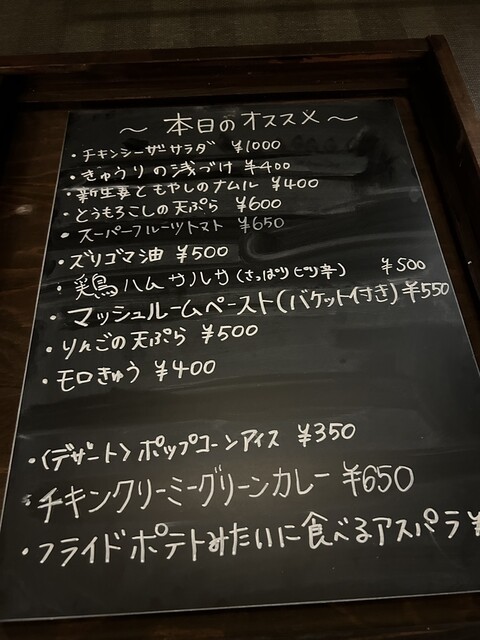 ～ 本日のオススメ ～
・チキンシーザサラダ ¥1000
・きゅうりの浅づけ ¥400
・新生姜ともやしのナムル ¥400
・とうもろこしの天ぷら ¥600
・スーパーフルーツトマト ¥650
・ズリゴマ油 ¥500
・鶏ハムサルサ(さっぱりピリ辛) ¥500
・マッシュルームペースト(バケット付き) ¥550
・りんごの天ぷら ¥500
・モロきゅう ¥400
・〈デザート〉ポップコーンアイス ¥350
・チキンクリーミーグリーンカレー ¥650
・フライドポテトみたいに食べるアスパラ ¥